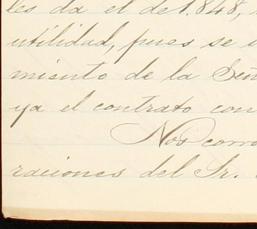 les da el de 1.848,
utilidad, pues se
miento de la Señ
ya el contrato con
Nos corro
raciones del Sr.